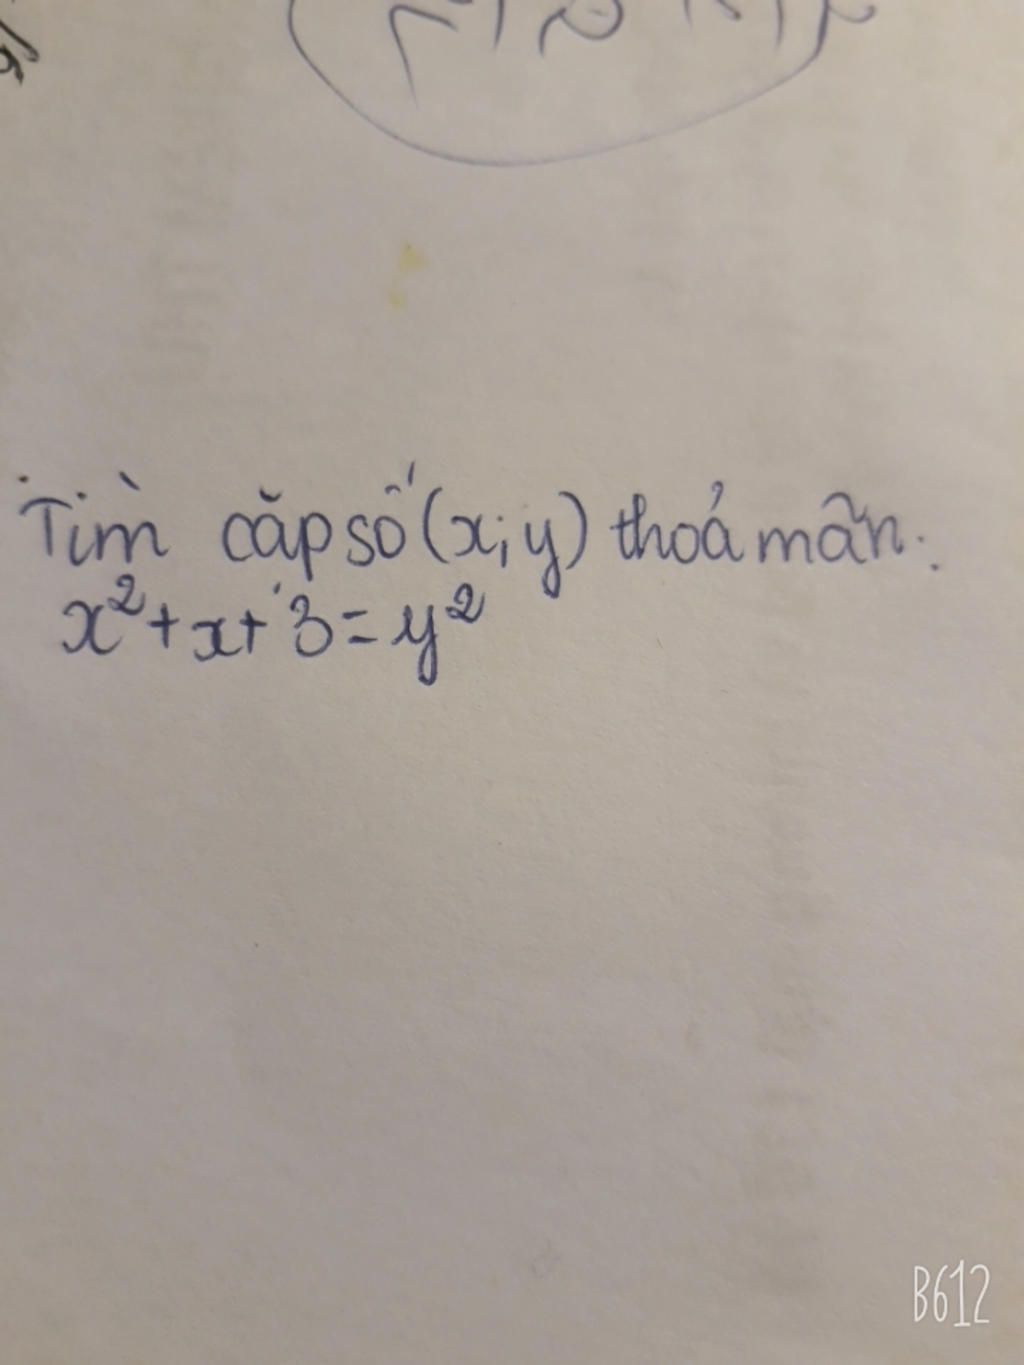 Tìm cặp số (x; y) thoả mãn:
x² + x + 3 = y²
B612